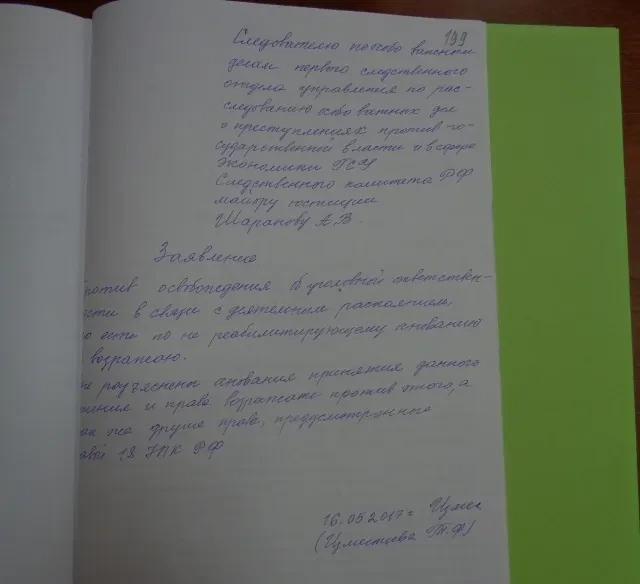 199
Следователю по особо важным
делам первого следственного
отдела управления по рас-
следованию особо важных дел
о преступлениях против го-
сударственной власти и в сфере
экономики ГСУ
Следственного комитета РФ
майору юстиции
Шарапову А.В.
Заявление
ротив освобождения от уголовной ответствен-
ости в связи с деятельным раскаянием,
о есть по не реабилитирующему основанию
возражаю.
не разъяснены основания принятия данного
шения и право возражать против этого, а
ак же другие права, предусмотренные
авой 18 УПК РФ
16.05.2017г.